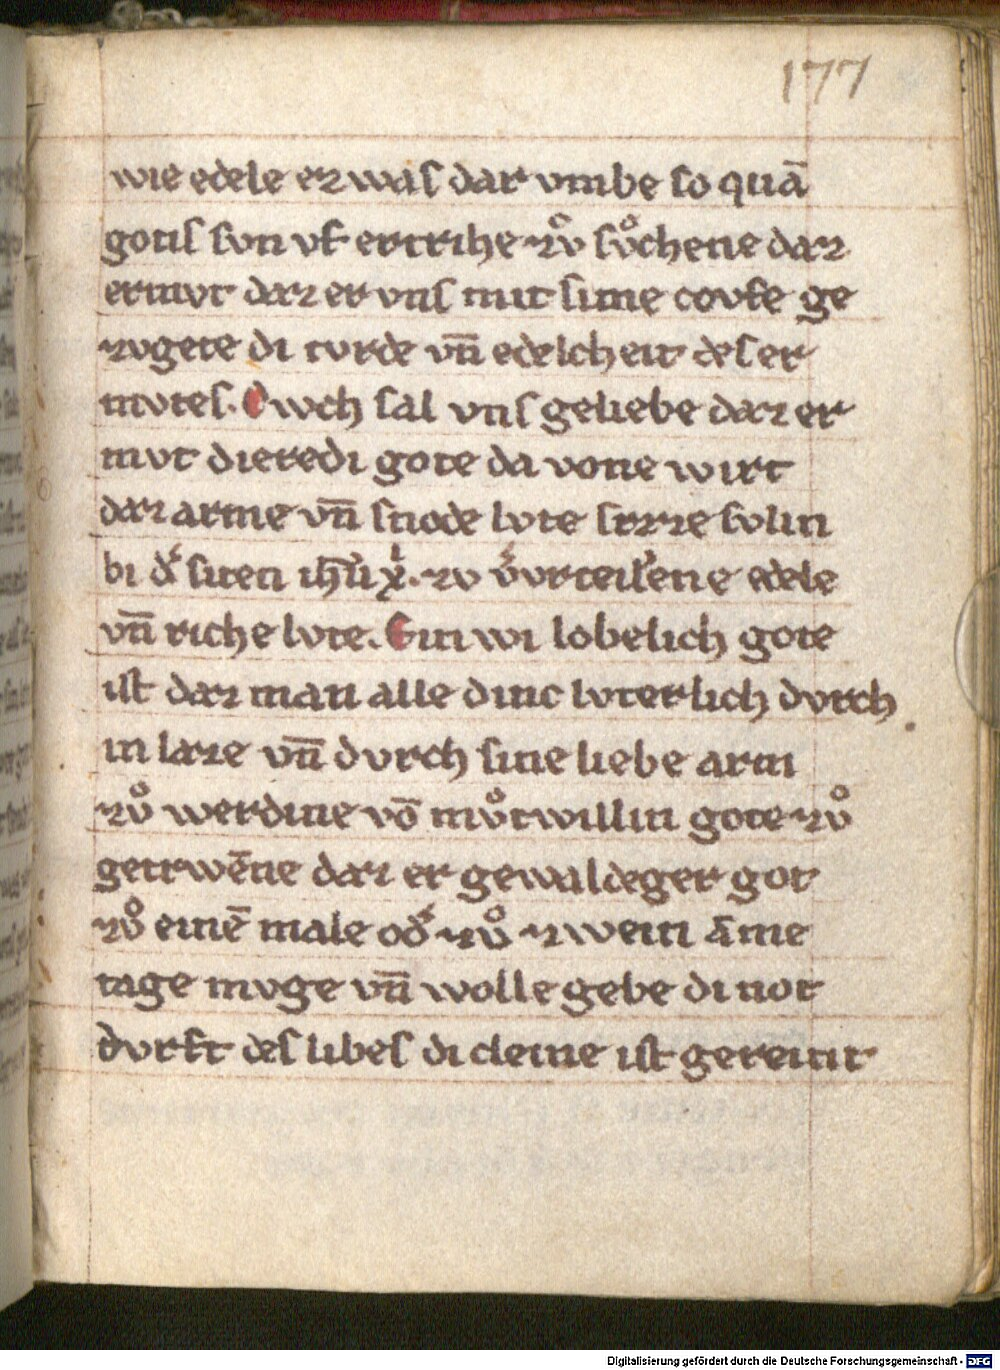 177
wie edele er was dar vmbe so quā
gotis svn vf ertrihe zvͦ sv̊chene daz
ermvt daz er vns mit sime covfe ge
zvgete di tvrde vn̄ edelcheit des er
mvtes. Ovch sal vns geliebe daz er
mvt die redi gote da vone wirt
daz arme vn̄ snode lvte sizze svlin
bi d' siten ih̄u xp̄i. zv v'vrteil'ene edele
vn̄ riche lvte. Ein wi lobelich gote
ist daz man alle dinc lvterlich dvrch
in laze vn̄ dvrch sine liebe arm
zvͦ werdine vō mvͦtwillin gote zvͦ
getrwēne daz er gewaldeger got
zvͦ einē male od' zvͦ zwein āme
tage mvge vn̄ wolle gebe di not
dvrft des libes di cleine ist gereinit
Digitalisierung gefördert durch die Deutsche Forschungsgemeinschaft - DFG